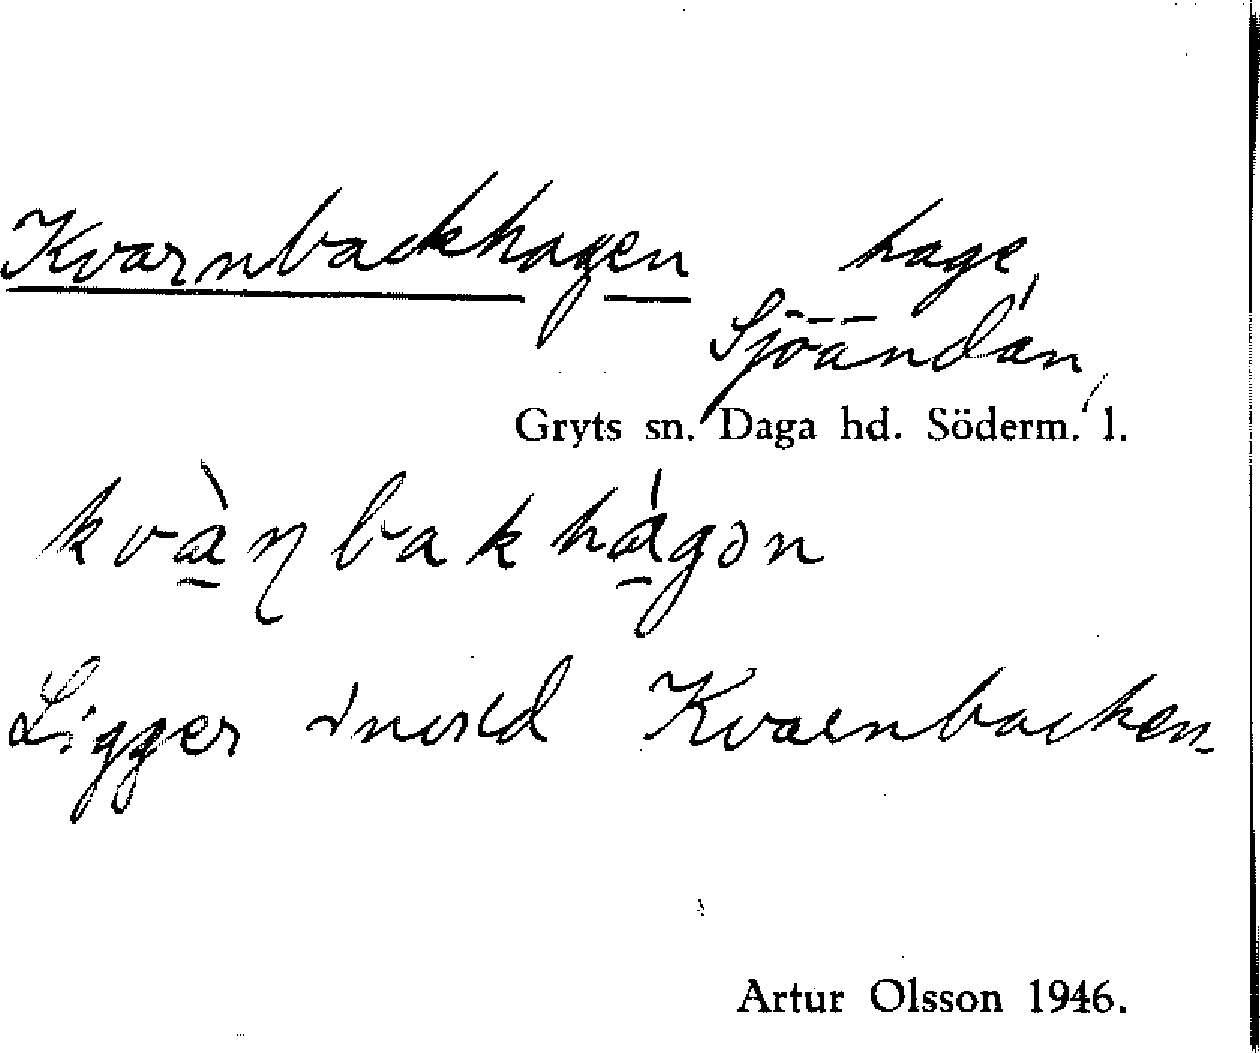 Kvarnbackhagen hage,
Sjöändan,
Gryts sn. Daga hd. Söderm. l.
kvà̱ɳbakhá̱gən
Ligger invid Kvarnbacken
Artur Olsson 1946.